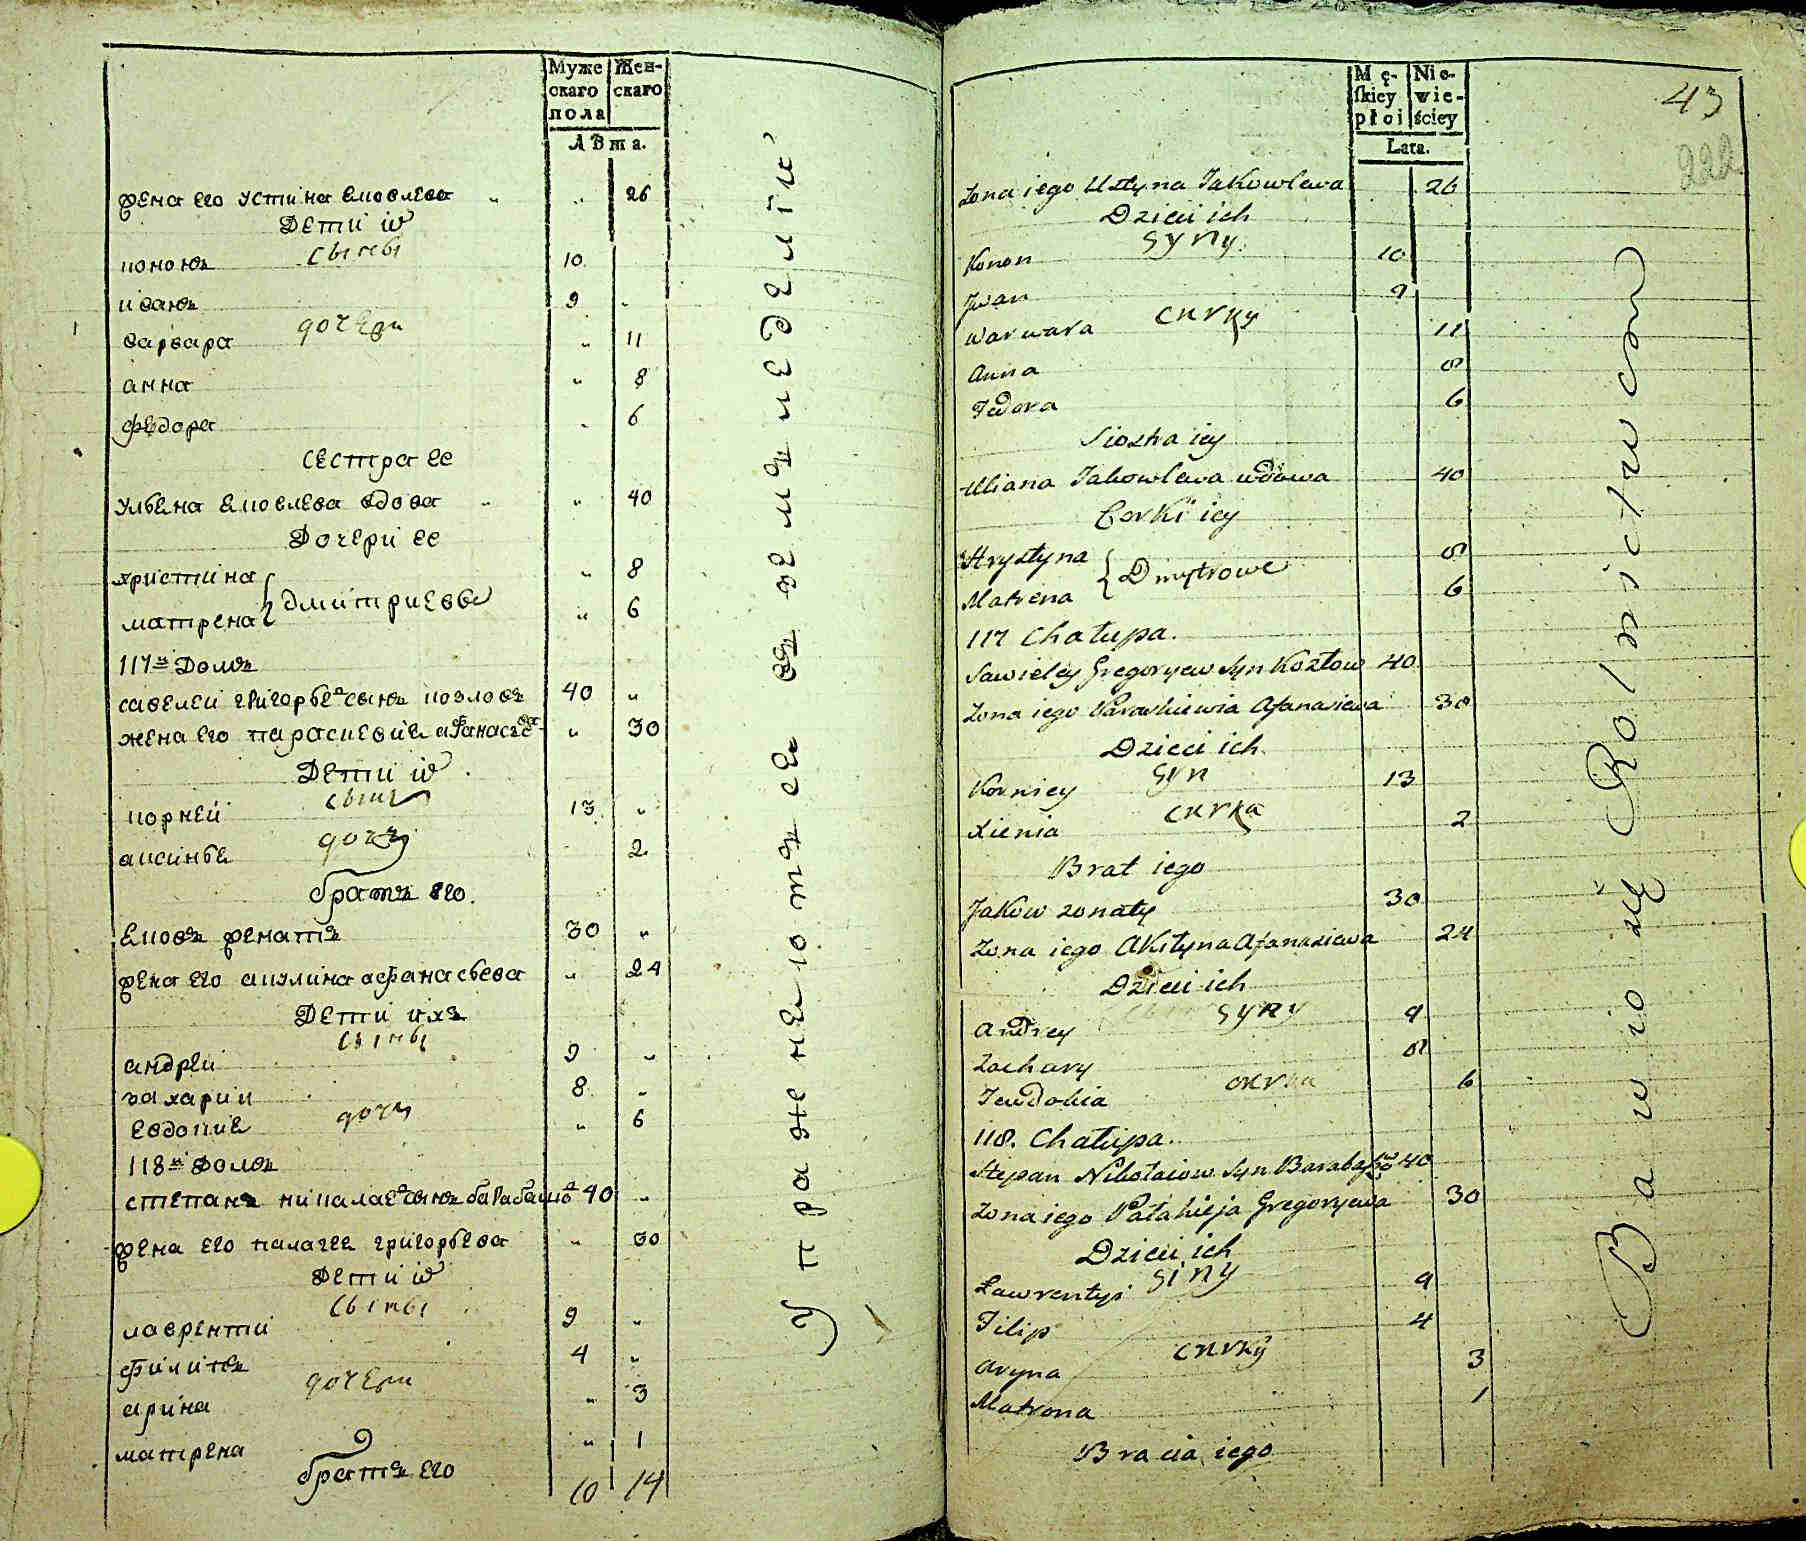 Муже Жен-
скаго скаго
пола
Лѣта.
жена его устина емовлева " " 26
Дети их
сыны
кононъ 10
иванъ 9 "
дочери
варвара " 11
анна " 8
федора " 6
сестра ее
ульена емовлева вдова " " 40
Дочери ее
христина " 8
дмитриевы
матрена " 6
117й Домъ
савелеи григорьевъ сынъ козловъ 40 "
жена его парасковия афанасева " 30
Дети их
сынъ
корнеи 13 "
дочь
аксинья 2
братъ его.
емовъ женатъ 30 "
жена его акулина афанасьева " 24
Дети ихъ
сыны
андреи 9 "
захарии 8 "
дочь
евдокия " 6
118й домъ
степанъ никалаевъ сынъ барабашо 40 "
жена его палагея григорьева " 30
дети их
сыны
лаврентии 9 "
филипъ 4 "
дочери
арина " 3
матрена " 1
братя его
10 14
Упражнеются въ земледелiи
Mę- Nie-
ſkiey wie-
płoi ściey
Lata.
43
222
Zona iego Ustyna Jakowlewa 26
Dzieci ich
Syny
Konon 10
Jwan 9
curky
Warwara 11
Anna 8
Fedora 6
Siostra iey
Uliana Jakowlewa wdowa 40
Corki iey
Hrystyna 8
Dmytrowe
Matrena 6
117 Chałupa.
Sawieley Gregoryew Syn Kozłow 40
Zona iego Paraskiewia Afanasiewa 30
Dzieci ich
Syn
Korniey 13
curka
Xienia 2
Brat iego
Jakow zonaty 30
Zona iego Akilyna Afanasiewa 24
Dzieci ich
Syny
Andrey 9
Zachary 8
curka
Jewdokia 6
118. Chałupa.
Stepan Nikołaiow Syn Barabaszow 40
Zona iego Pałahieja Gregoryewa 30
Dzieci ich
Siny
Ławrentyi 9
Filip 4
curky
Aryna 3
Matrona 1
Bracia iego
Bawio się Rolnictwem